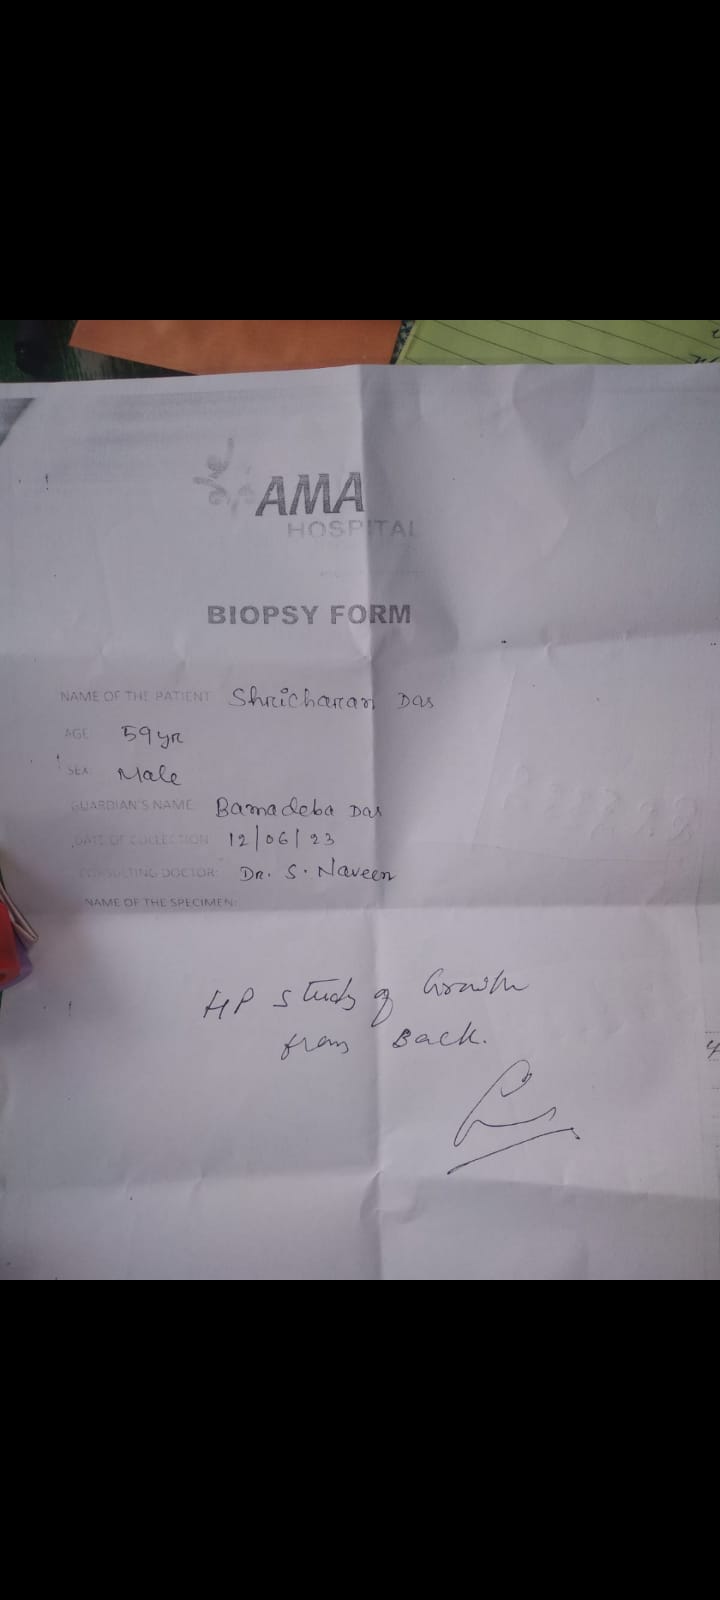 AMA
HOSPITAL
BIOPSY FORM
NAME OF THE PATIENT Shricharan Das
AGE 59 yr
SEX: Male
GUARDIAN'S NAME: Bamadeba Das
DATE OF COLLECTION 12/06/23
CONSULTING DOCTOR: Dr. S. Naveen
NAME OF THE SPECIMEN:
HP study of Growth
from Back.